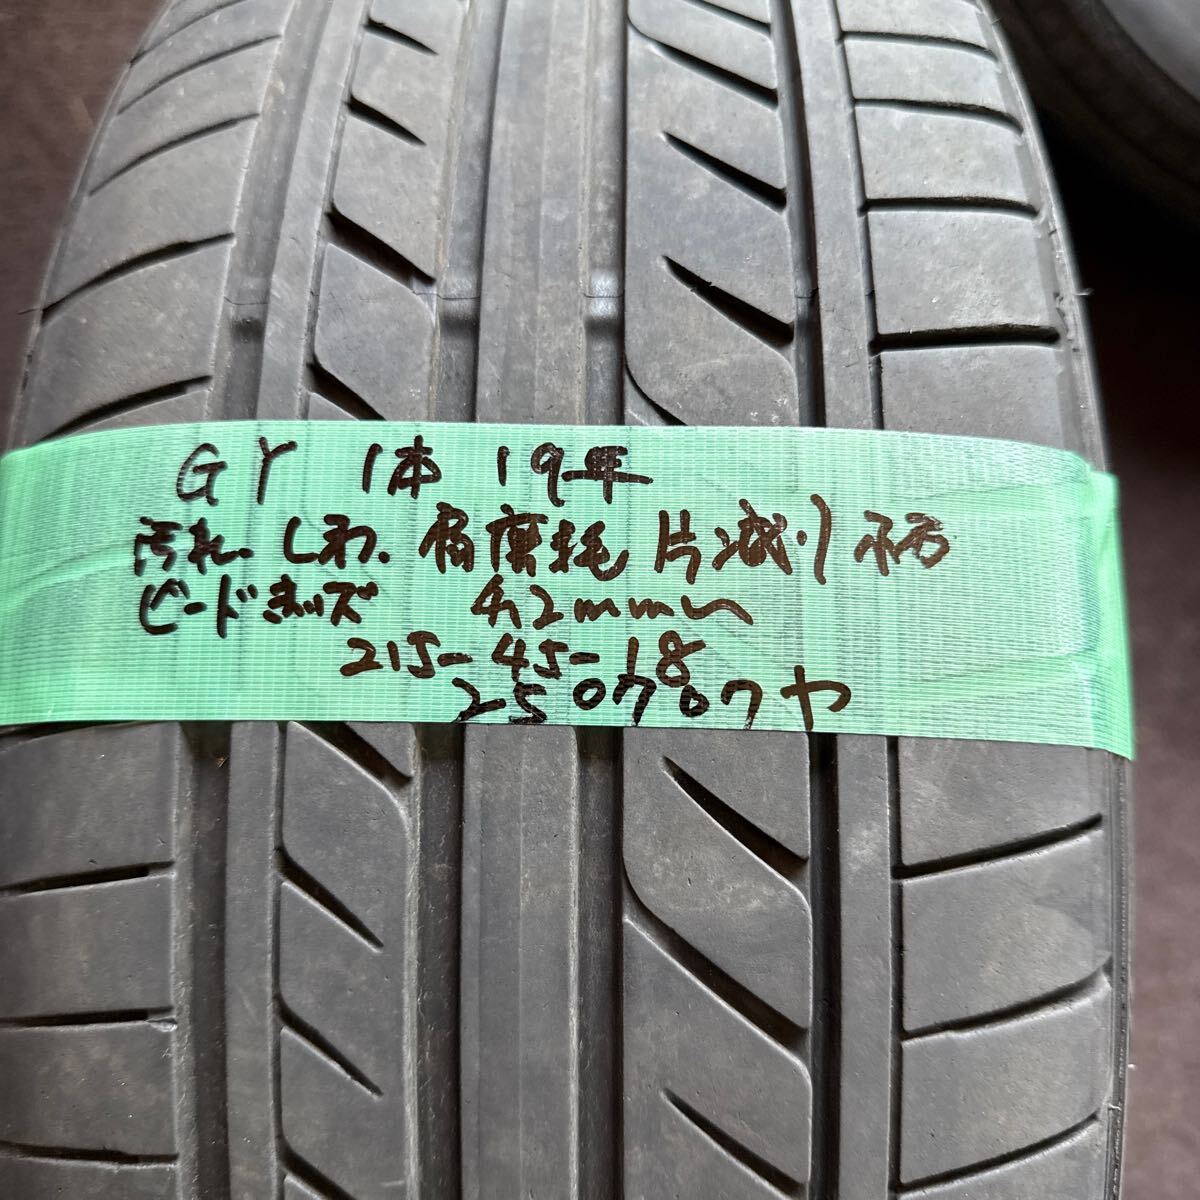 GY 1本 19年
汚れ、しわ、角磨耗 片減り 有
ビードキズ 4,2mm〜
215-45-18
250707ヤ